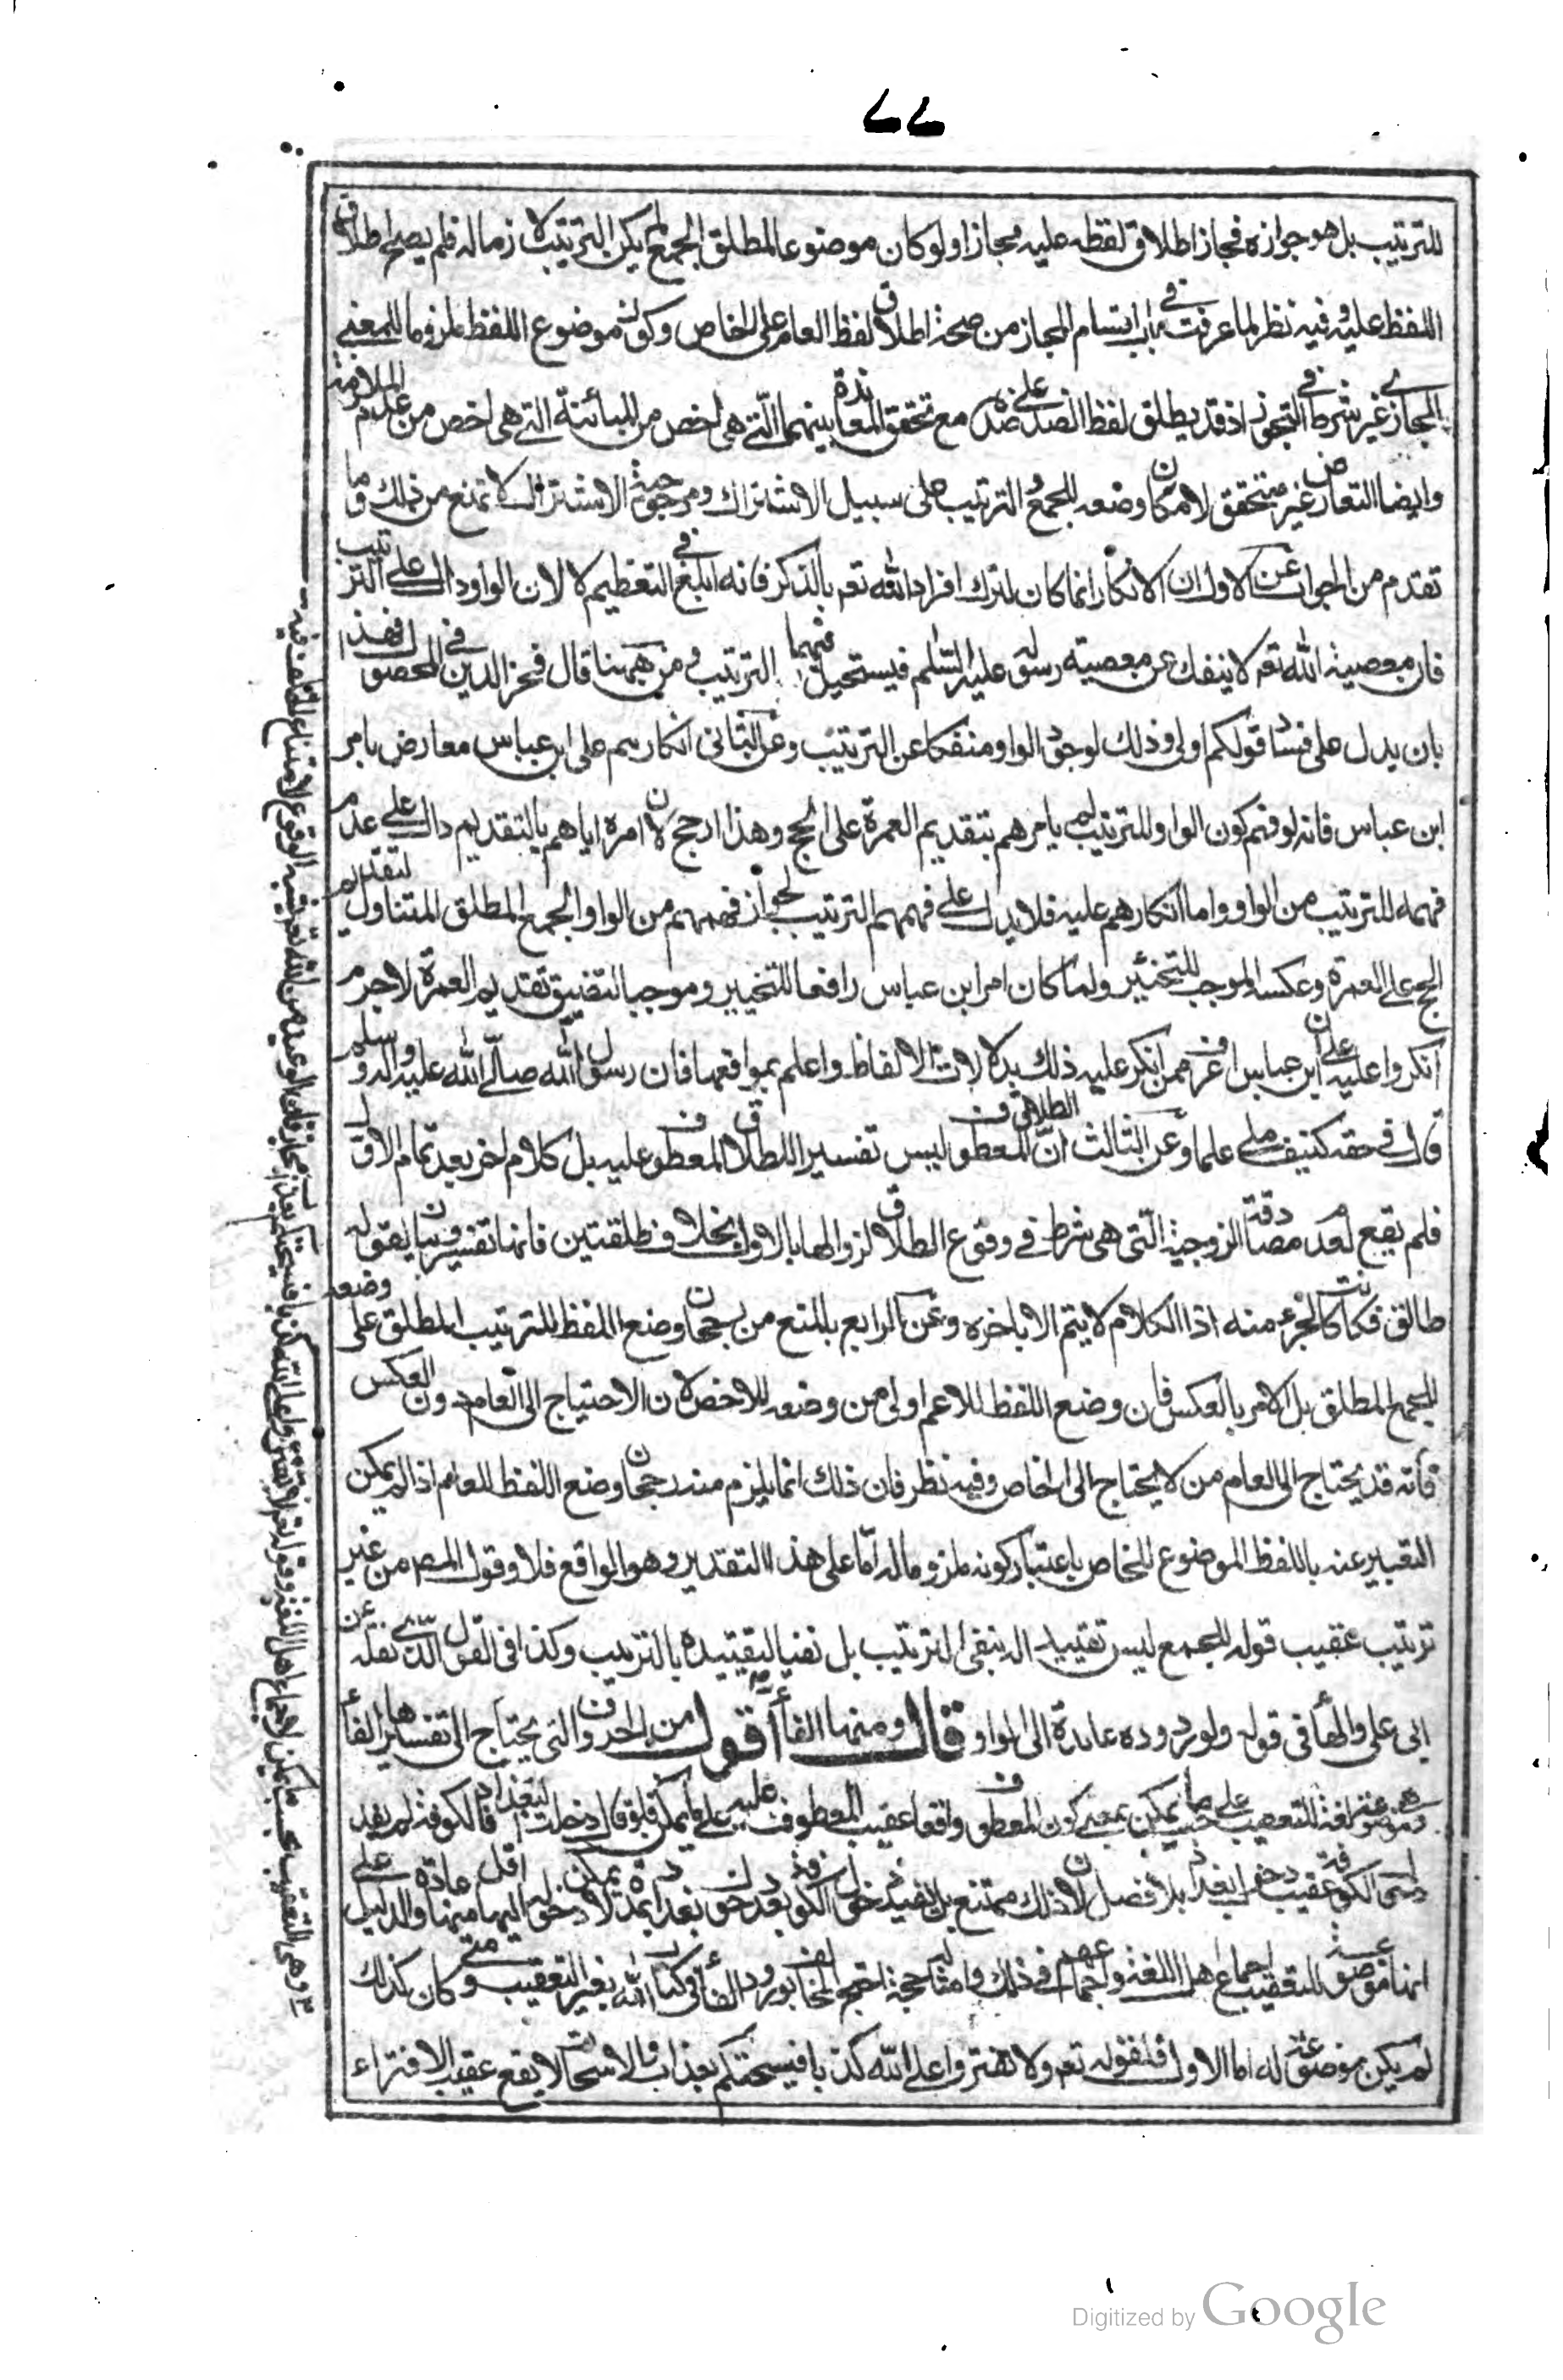 للترتيب بل هو جوازه فجاز اطلاق لفظه عليه مجازا ولو كان موضوعا لمطلق الجمع لم يكن الترتيب لازما له فلم يصح اطلاق
اللفظ عليه وفيه نظر لما عرفت في باب اقسام المجاز من صحة اطلاق لفظ العام على الخاص وكون موضوع اللفظ ملزوما للمعنى
المجازي غير شرط في التجوز اذ قد يطلق لفظ الضد على ضده مع تحقق المعاندة بينهما التي هي اخص من المباينة التي هي اخص من عدم الملازمة
وايضا التعارض غير متحقق لامكان وضعه للجمع و الترتيب على سبيل الاشتراك ومرجوحية الاشتراك لا تمنع من ذلك وما
تقدم من الجواب عن الاول ان الانكار انما كان لترك افراد الله تعه بالذكر فانه ابلغ في التعظيم لا لان الواو دال على الترتيب
فان معصية الله تعه لا ينفك عن معصية رسوله عليه السلم فيستحيل الترتيب فيهما ومن ههنا قال فخر الدين في المحصول فهذا
بان يدل على فساد قولكم اولى وذلك لوجود الواو منفكا عن الترتيب وعن الثاني انكارهم على ابن عباس معارض بامر
ابن عباس فانه لو فهم كون الواو للترتيب لم يامرهم بتقديم العمرة على الحج وهذا ارجح لان امره اياهم بالتقديم دال على عدم
فهمه للترتيب من الواو واما انكارهم عليه فلا يدل على فهمهم الترتيب لجواز فهمهم من الواو الجمع المطلق المتناول لتقديم
الحج على العمرة وعكسه الموجب للتخيير ولما كان امر ابن عباس رافعا للتخيير وموجبا لتضييق تقديم العمرة لا جرم
انكروا عليه على ان ابن عباس اعرف ممن انكر عليه ذلك بدلالات الالفاظ واعلم بمواقعها فان رسول الله صلى الله عليه واله وسلم
قال في حقه كنيف ملي علما وعن الثالث ان الطلاق المعطوف ليس تفسير اللطلاق المعطوف عليه بل كلام اخر بعد تمام الاول
فلم يقع لعدم مصادقة الزوجية التي هي شرط في وقوع الطلاق لزوالها بالاول بخلاف طلقتين فانها تفسير وبيان لقوله
طالق فكانت كالجزء منه اذ الكلام لا يتم الا باخره وعن الرابع بالمنع من رجحان وضع اللفظ للترتيب المطلق على وضعه
للجمع المطلق بل الامر بالعكس فان وضع اللفظ للاعم اولى من وضعه للاخص لان الاحتياج الى العام دون العكس
فانه قد يحتاج الى العام من لا يحتاج الى الخاص وفيه نظر فان ذلك انما يلزم منه رجحان وضع اللفظ للعام اذا لم يمكن
التعبير عنه باللفظ الموضوع للخاص باعتبار كونه ملزوما له اما على هذا التقدير وهو الواقع فلا وقول المصـ من غير
ترتيب عقيب قوله للجمع ليس تقييدا له بنفي الترتيب بل نفيا لتقييده بالترتيب وكذا في القول الذي نقله عن
ابي علي والهأ في قوله ولورودوده عايدة الى الواو قال ومنها الفأ اقول من الحروف التي يحتاج الى تفسيرها الفأ
وهي موضوعة لغة للتعقيب على حسب ما يمكن بمعنى كون المعطوف واقعا عقيب المعطوف عليه على ما يمكن فلو قال دخلت بغداد فالكوفة لم يفد
دخول الكوفة عقيب دخول بغداد بلا فصل لان ذلك ممتنع بل يفيد دخول الكوفة بعد دخول بغداد بمدة لا يمكن دخوله اليها اقل منها عادة والدليل على
انها موضوعة للتعقيب اجماع اهل اللغة واجماعهم في ذلك وامثاله حجة احتج المخالف بورود الفأ في كتاب الله بغير التعقيب ومتى كان كذلك
لم يكن موضوعة له اما الاول فلقوله تعه ولا تفتروا على الله كذبا فيسحتكم بعذاب والاسحات لا يقع عقيب الافتراء
Digitized by Google